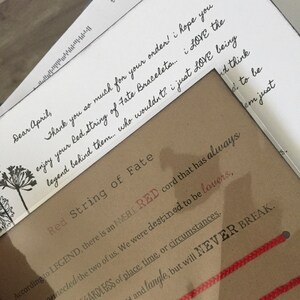 Dear April,
Thank you so much for your order! i hope you
enjoy your Red String of Fate Bracelets. i LOVE the
legend behind them. who wouldn't? i just LOVE being
think
to be
em just
Red String of Fate
to LEGEND, there is an RED cord that has always
connected the two of us. We were destined to be lovers,
of place, time, or circumstances.
and tangle, but will NEVER BREAK.